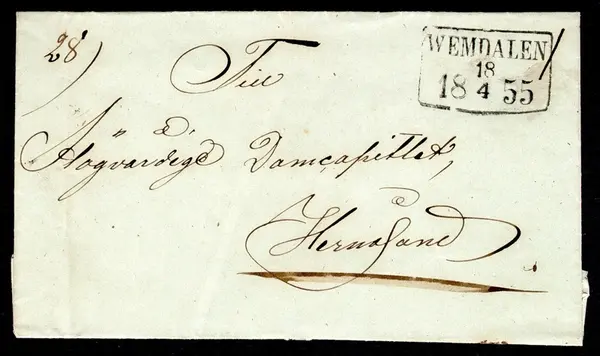 28
Till
WEMDALEN
18
18 4 55
Högvördige Domcapitlet,
Hernösand